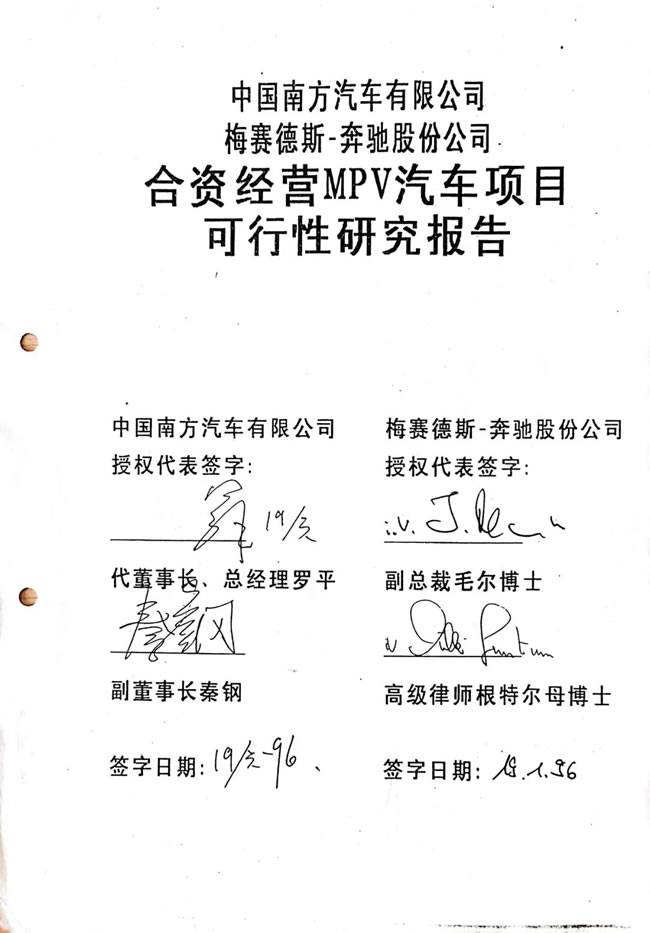 中国南方汽车有限公司
梅赛德斯-奔驰股份公司
合资经营MPV汽车项目
可行性研究报告
中国南方汽车有限公司
授权代表签字:
代董事长、总经理罗平
秦钢
副董事长秦钢
签字日期:
梅赛德斯-奔驰股份公司
授权代表签字:
i.V.
副总裁毛尔博士
高级律师根特尔母博士
签字日期: 19.1.96